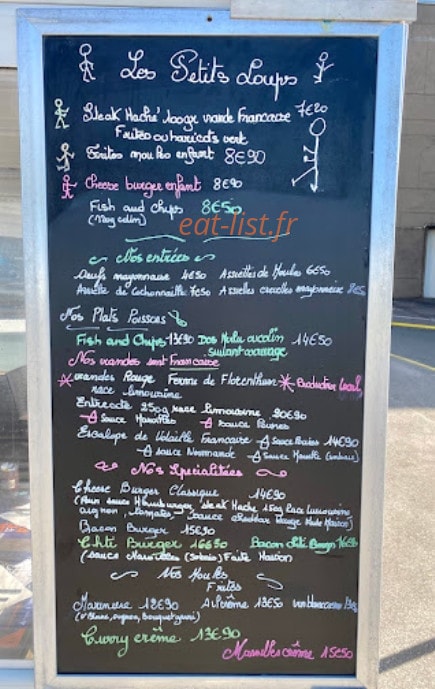 Les Petits Loups
Steak Haché 100gr viande Francaise 7€20
Frites ou haricots vert
Frites moules enfant 8€90
Cheese burger enfant 8€90
Fish and chips 8€50
eat-list.fr
Nos entrées
Oeufs mayonnaise 4€50 Assiettes de Moules 6€50
Assiette de Cochonnaille 7€50 Assiettes crevettes mayonnaise 8€50
Nos Plats Poissons
Fish and Chips 13€90 Dos Merlu 14€50
suivant arrivage
Nos viandes sont Francaise
viandes Rouge Ferme de Flotenthun Production Local
race limousine
Entrecote 250g race limousine 20€90
Sauce Maroilles Sauce Poivres
Escalope de Volaille Francaise Sauce 14€90
Sauce Normande Sauce
Nos Spécialitées
Cheese Burger Classique 14€90
(Pain sauce Hamburger, Steak Haché 150g Race Limousine
oignon, tomates, sauce cheddar Maison)
Bacon Burger 15€90
Chti Burger 16€90 Bacon Chti Burger
(Sauce Maroilles) Faite Maison
Nos Moules
Frites
Marinière 12€90 A la crème 13€50 vin blanc
Curry crème 13€90
Maroilles crème 15€50